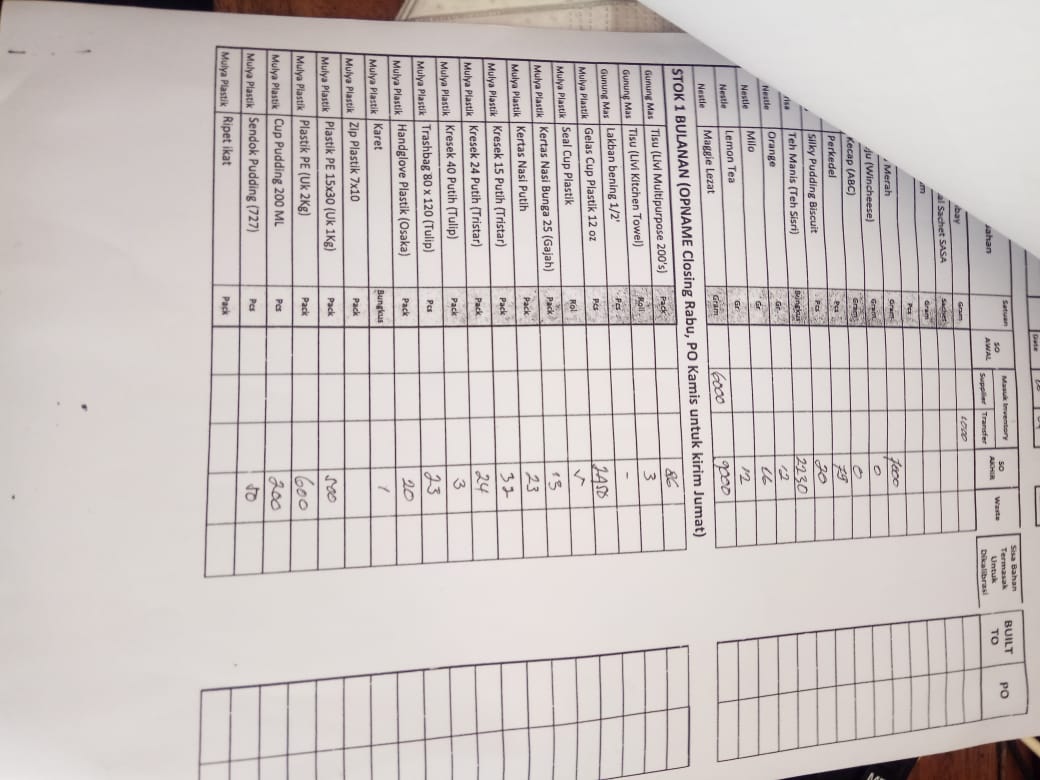 Date
Bahan Satuan SO AWAL Masuk Inventory Supplier Transfer SO AKHIR Waste Sisa Bahan Termasak Untuk Dikalibrasi BUILT TO PO
Gram 1000
Sachet SASA Sachet
Gram
Pcs
Merah Gram 7000
(Wincheese) Gram 0
Kecap (ABC) Gram 0
Perkedel Pcs 79
Silky Pudding Biscuit Pcs 20
Teh Manis (Teh Sisri) Bungkus 2230
Nestle Orange Gr 12
Nestle Milo Gr 16
Nestle Lemon Tea Gr 12
Nestle Maggie Lezat Gram 6000 9000
STOK 1 BULANAN (OPNAME Closing Rabu, PO Kamis untuk kirim Jumat)
Gunung Mas Tisu (Livi Multipurpose 200's) Pack 86
Gunung Mas Tisu (Livi Kitchen Towel) Roll 3
Gunung Mas Lakban bening 1/2' Pcs -
Mulya Plastik Gelas Cup Plastik 12 oz Pcs 2450
Mulya Plastik Seal Cup Plastik Rol
Mulya Plastik Kertas Nasi Bunga 25 (Gajah) Pack 13
Mulya Plastik Kertas Nasi Putih Pack 23
Mulya Plastik Kresek 15 Putih (Tristar) Pack 32
Mulya Plastik Kresek 24 Putih (Tristar) Pack 24
Mulya Plastik Kresek 40 Putih (Tulip) Pack 3
Mulya Plastik Trashbag 80 x 120 (Tulip) Pcs 23
Mulya Plastik Handglove Plastik (Osaka) Pack 20
Mulya Plastik Karet Bungkus 1
Mulya Plastik Zip Plastik 7x10 Pack
Mulya Plastik Plastik PE 15x30 (Uk 1Kg) Pack 500
Mulya Plastik Plastik PE (Uk 2Kg) Pack 600
Mulya Plastik Cup Pudding 200 ML Pcs 200
Mulya Plastik Sendok Pudding (727) Pcs 50
Mulya Plastik Ripet ikat Pack